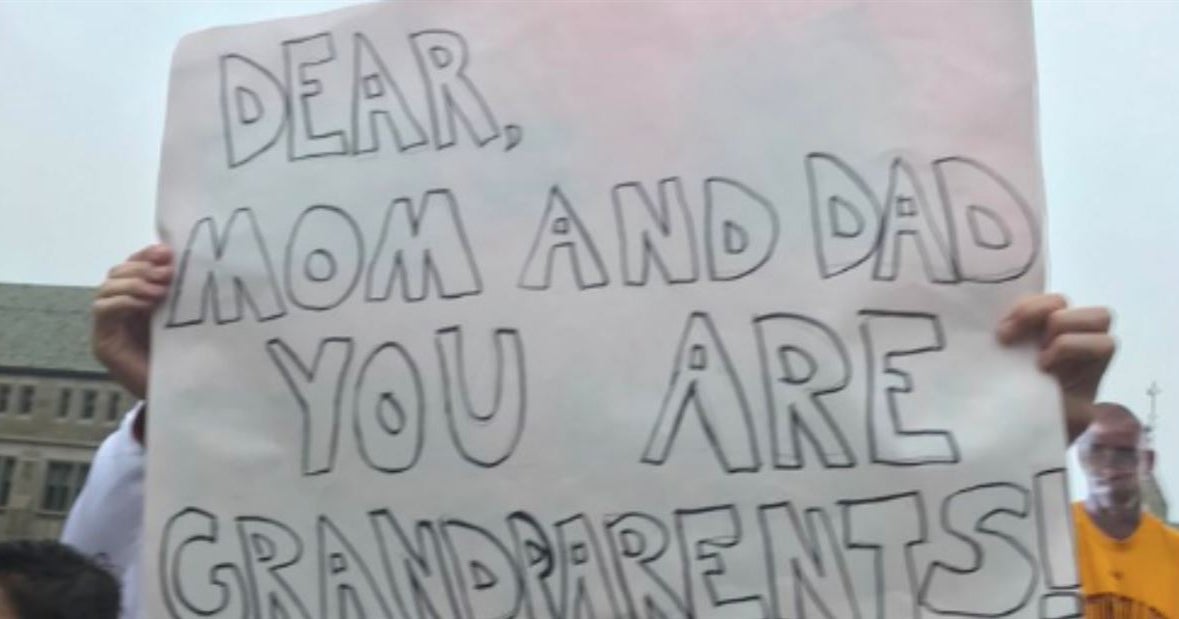 DEAR,
MOM AND DAD
YOU ARE
GRANDPARENTS!